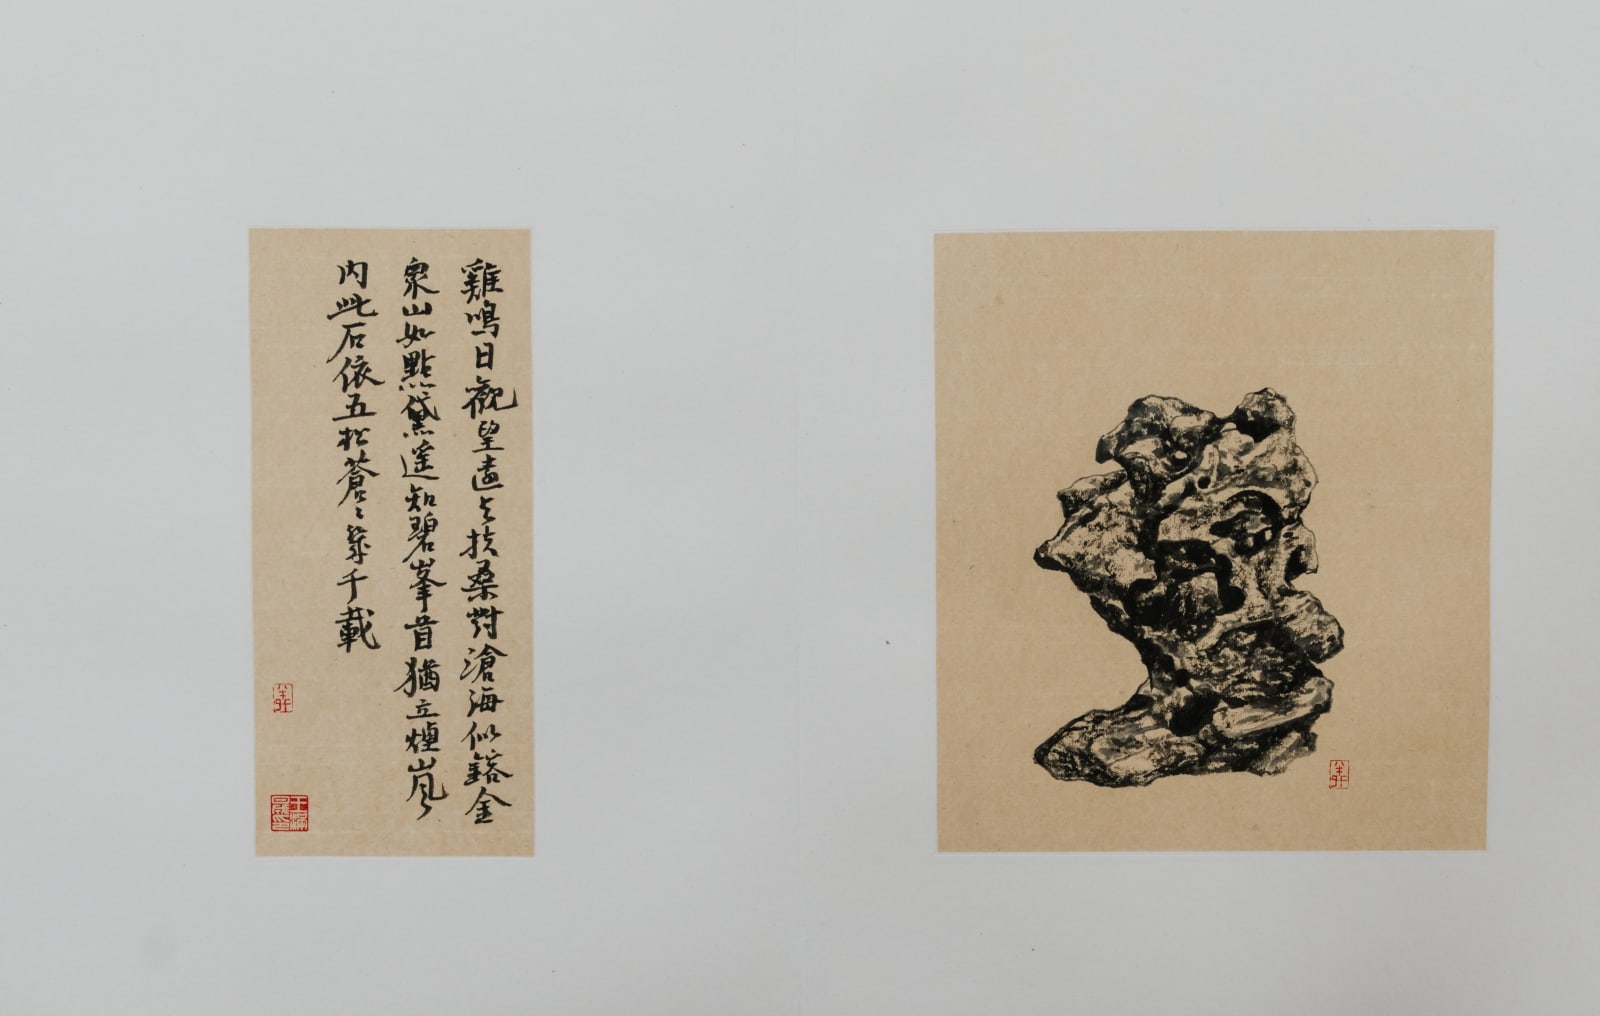 雞鳴日觀望遠與扶桑對滄海似鎔金
眾山如點黛遙知碧峯首猶立煙嵐
內此石依五松蒼々幾千載